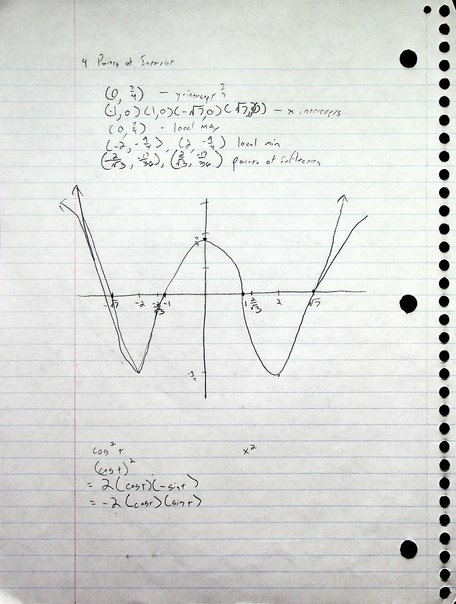 4 Points of Interest
(0, 7/4) - y-intercept 7/4
(-1,0) (1,0) (-√7,0) (√7,0) - x intercepts
(0, 7/4) - local max
(-2, -9/4), (2, -9/4) local min
(-2/√3, -17/36), (2/√3, -17/36) points of inflection
7/4
-√7 -2 -2/√3 -1 1 2/√3 2 √7
-9/4
cos² t x²
(cos t)²
= 2(cos t)(-sin t)
= -2(cos t)(sin t)